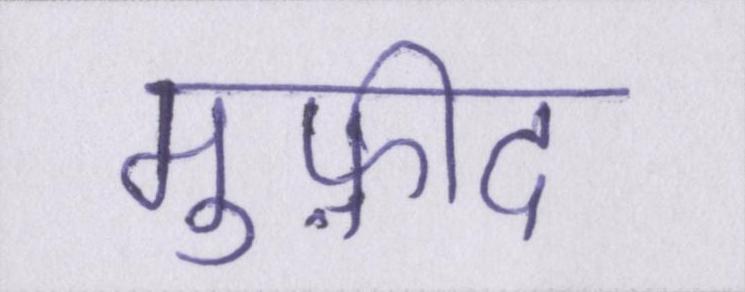 मुफ़ीद